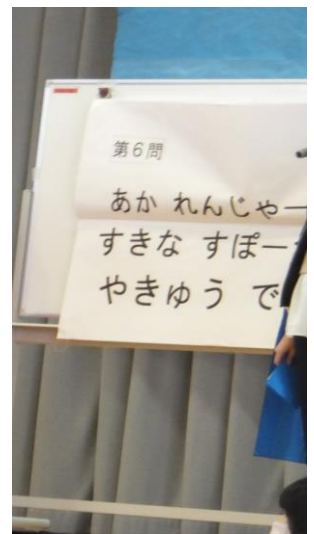 第6問
あか れんじゃー
すきな すぽー
やきゅう で